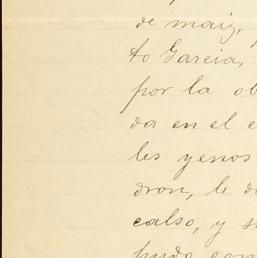 de maiz,
to Garcia,
por la ob
da en el e
les yenos
dron, le d
calso, y s